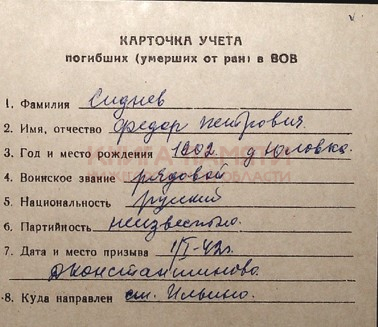 КАРТОЧКА УЧЕТА
погибших (умерших от ран) в ВОВ
1. Фамилия Сиднев
2. Имя, отчество Федор Петрович.
3. Год и место рождения 1902 д Юловка.
4. Воинское звание рядовой
5. Национальность русский
6. Партийность неизвестно.
7. Дата и место призыва 1/I-42г.
Константиново.
8. Куда направлен ст. Ильино.
КНИГА ПАМЯТИ
ОБЛАСТИ